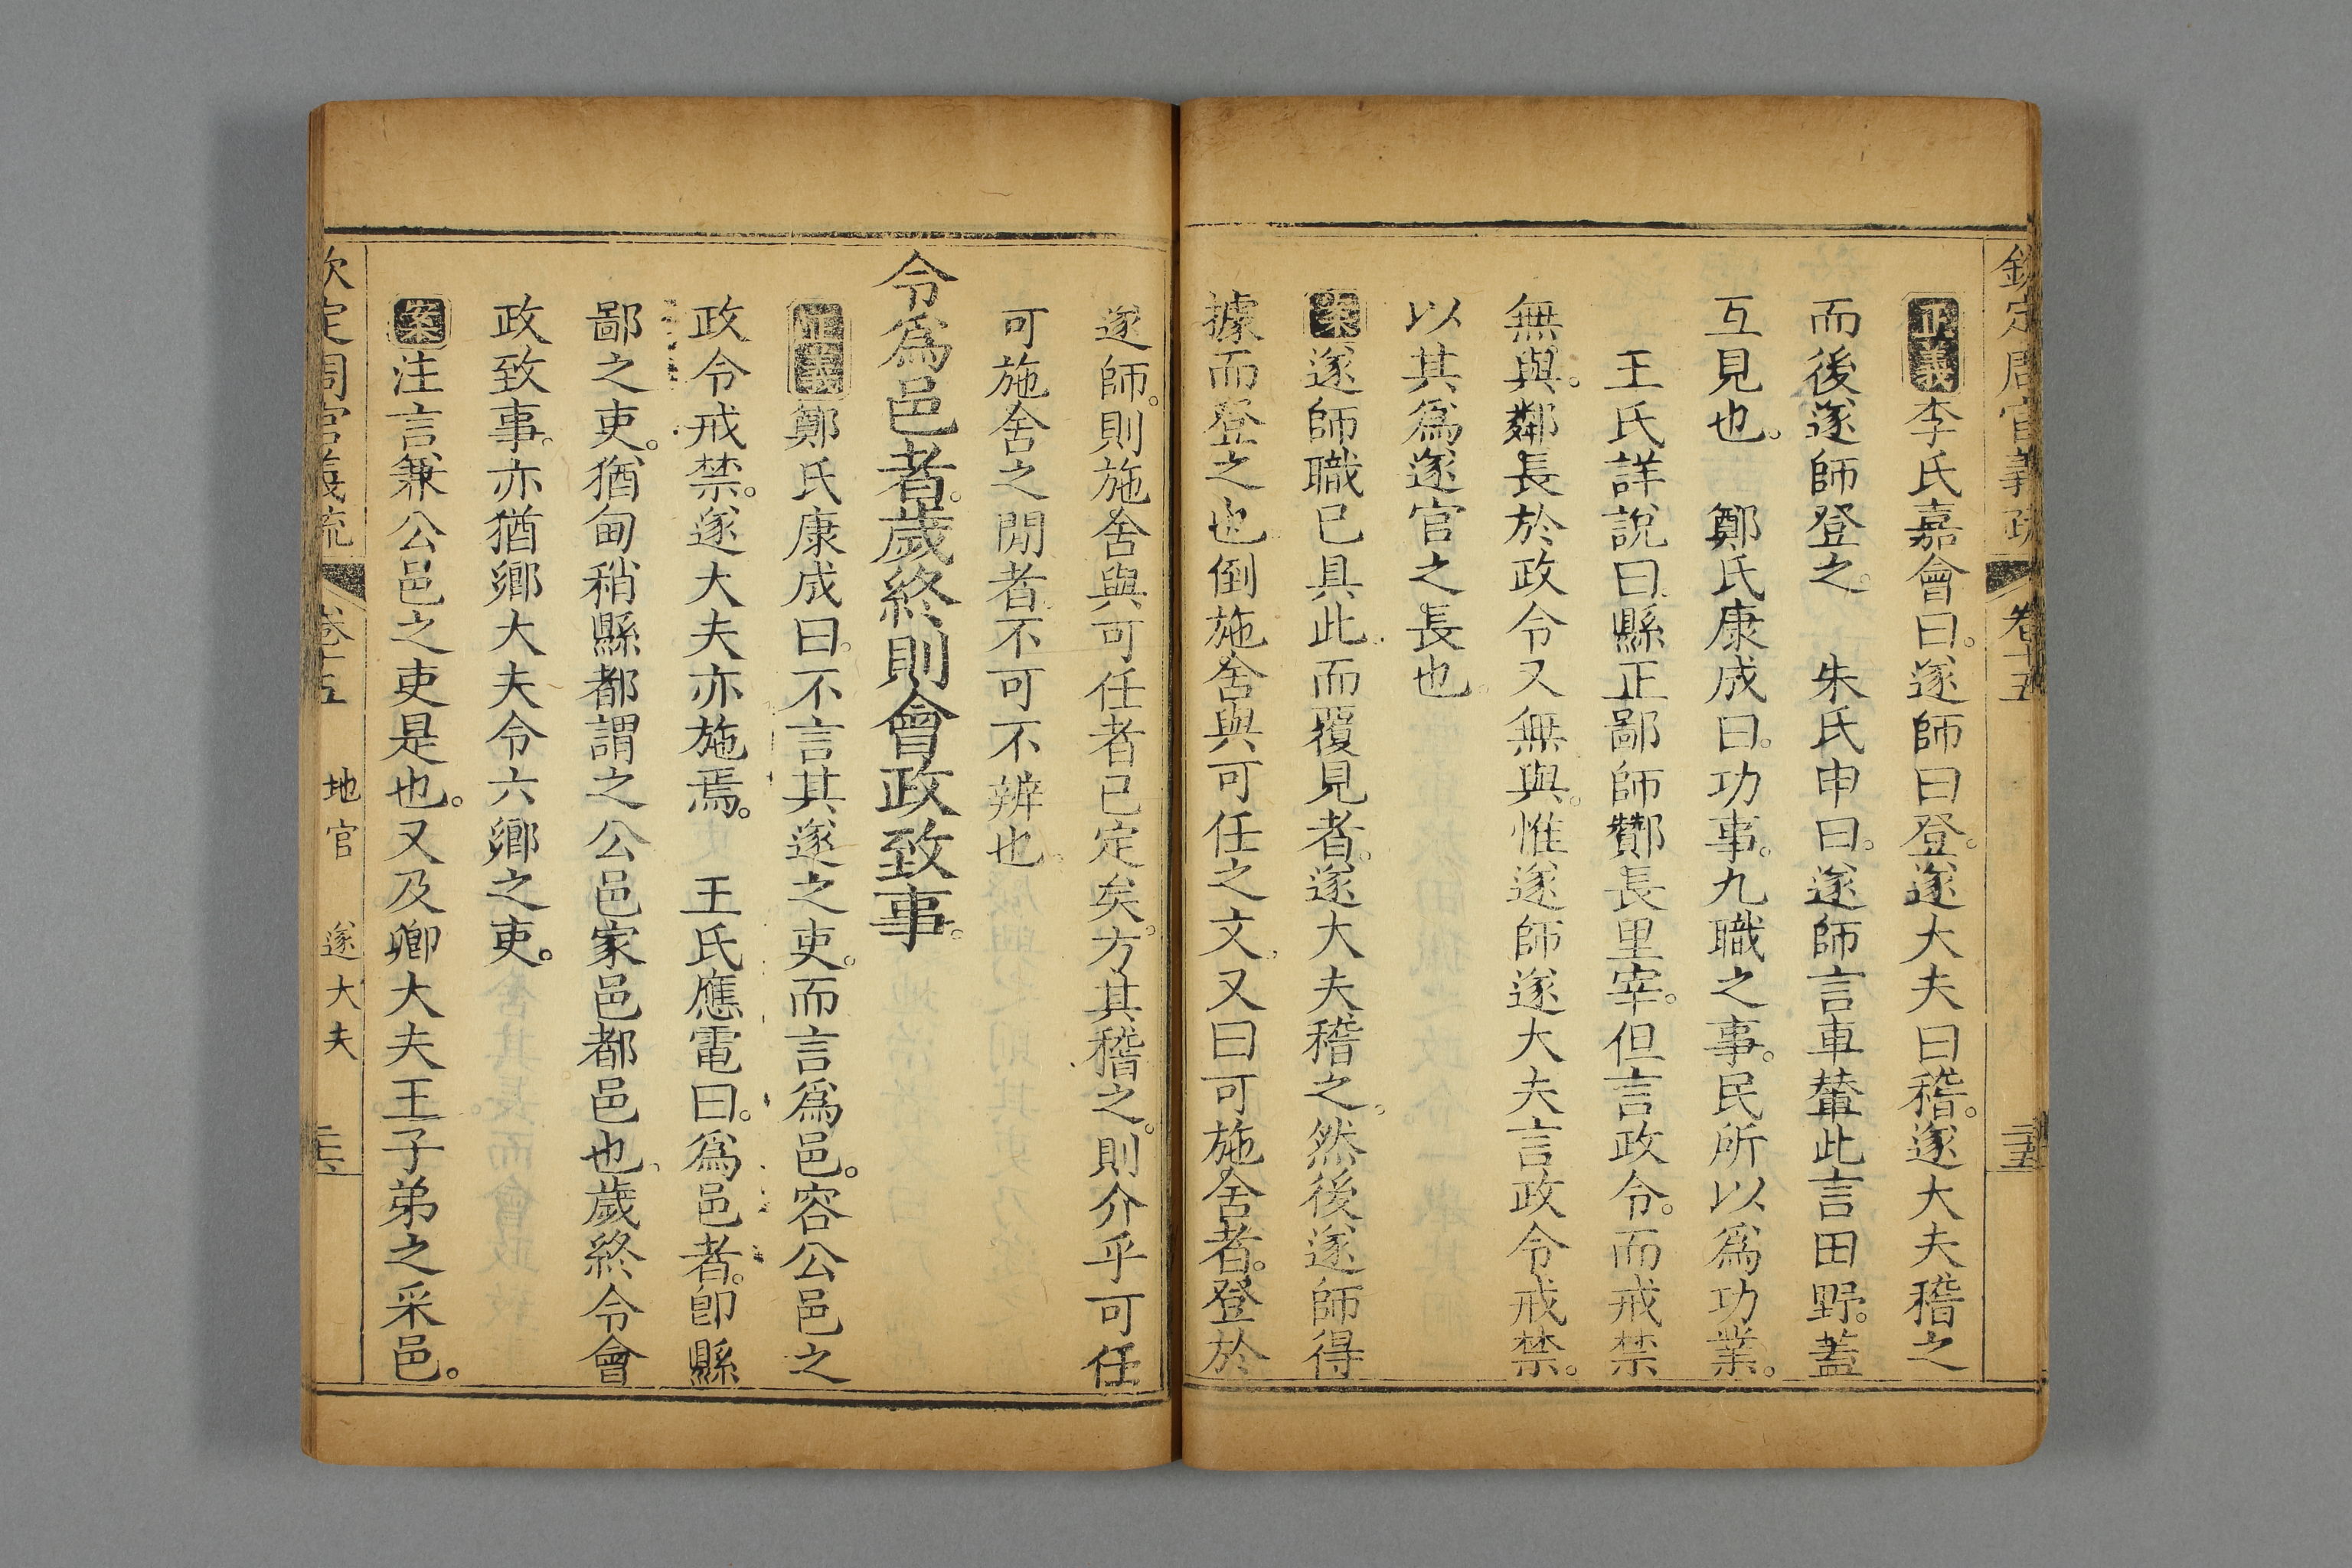 欽定周官義疏 卷十五
正義李氏嘉會曰。遂師曰登。遂大夫曰稽。遂大夫稽之
而後遂師登之。 朱氏申曰。遂師言車輦此言田野。蓋
互見也。 鄭氏康成曰。功事。九職之事。民所以爲功業。
王氏詳說曰。縣正鄙師酇長里宰。但言政令。而戒禁
無與。鄰長於政令又無與。惟遂師遂大夫言政令戒禁。
以其爲遂官之長也。
案遂師職已具此。而覆見者。遂大夫稽之。然後遂師得
據而登之也。倒施舍與可任之文。又曰可施舍者。登於
遂師。則施舍與可任者已定矣。方其稽之。則介乎可任
可施舍之閒者。不可不辨也。
令爲邑者。歲終則會政致事。
正義鄭氏康成曰。不言其遂之吏。而言爲邑。容公邑之
政令戒禁。遂大夫亦施焉。 王氏應電曰。爲邑者。卽縣
鄙之吏。猶甸稍縣都謂之公邑家邑都邑也。歲終令會
政致事。亦猶鄉大夫令六鄉之吏。
案注言兼公邑之吏是也。又及卿大夫王子弟之采邑。
欽定周官義疏 卷十五 地官 遂大夫